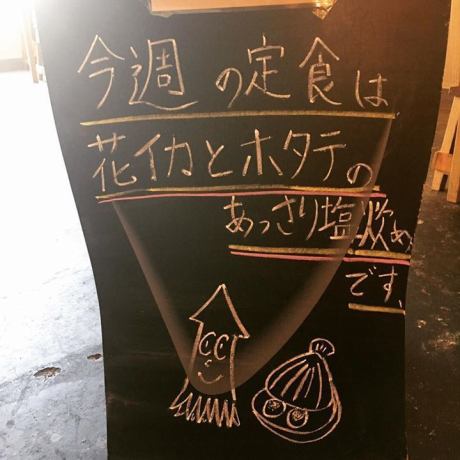 今週の定食は
花イカとホタテの
あっさり塩炊め
です。